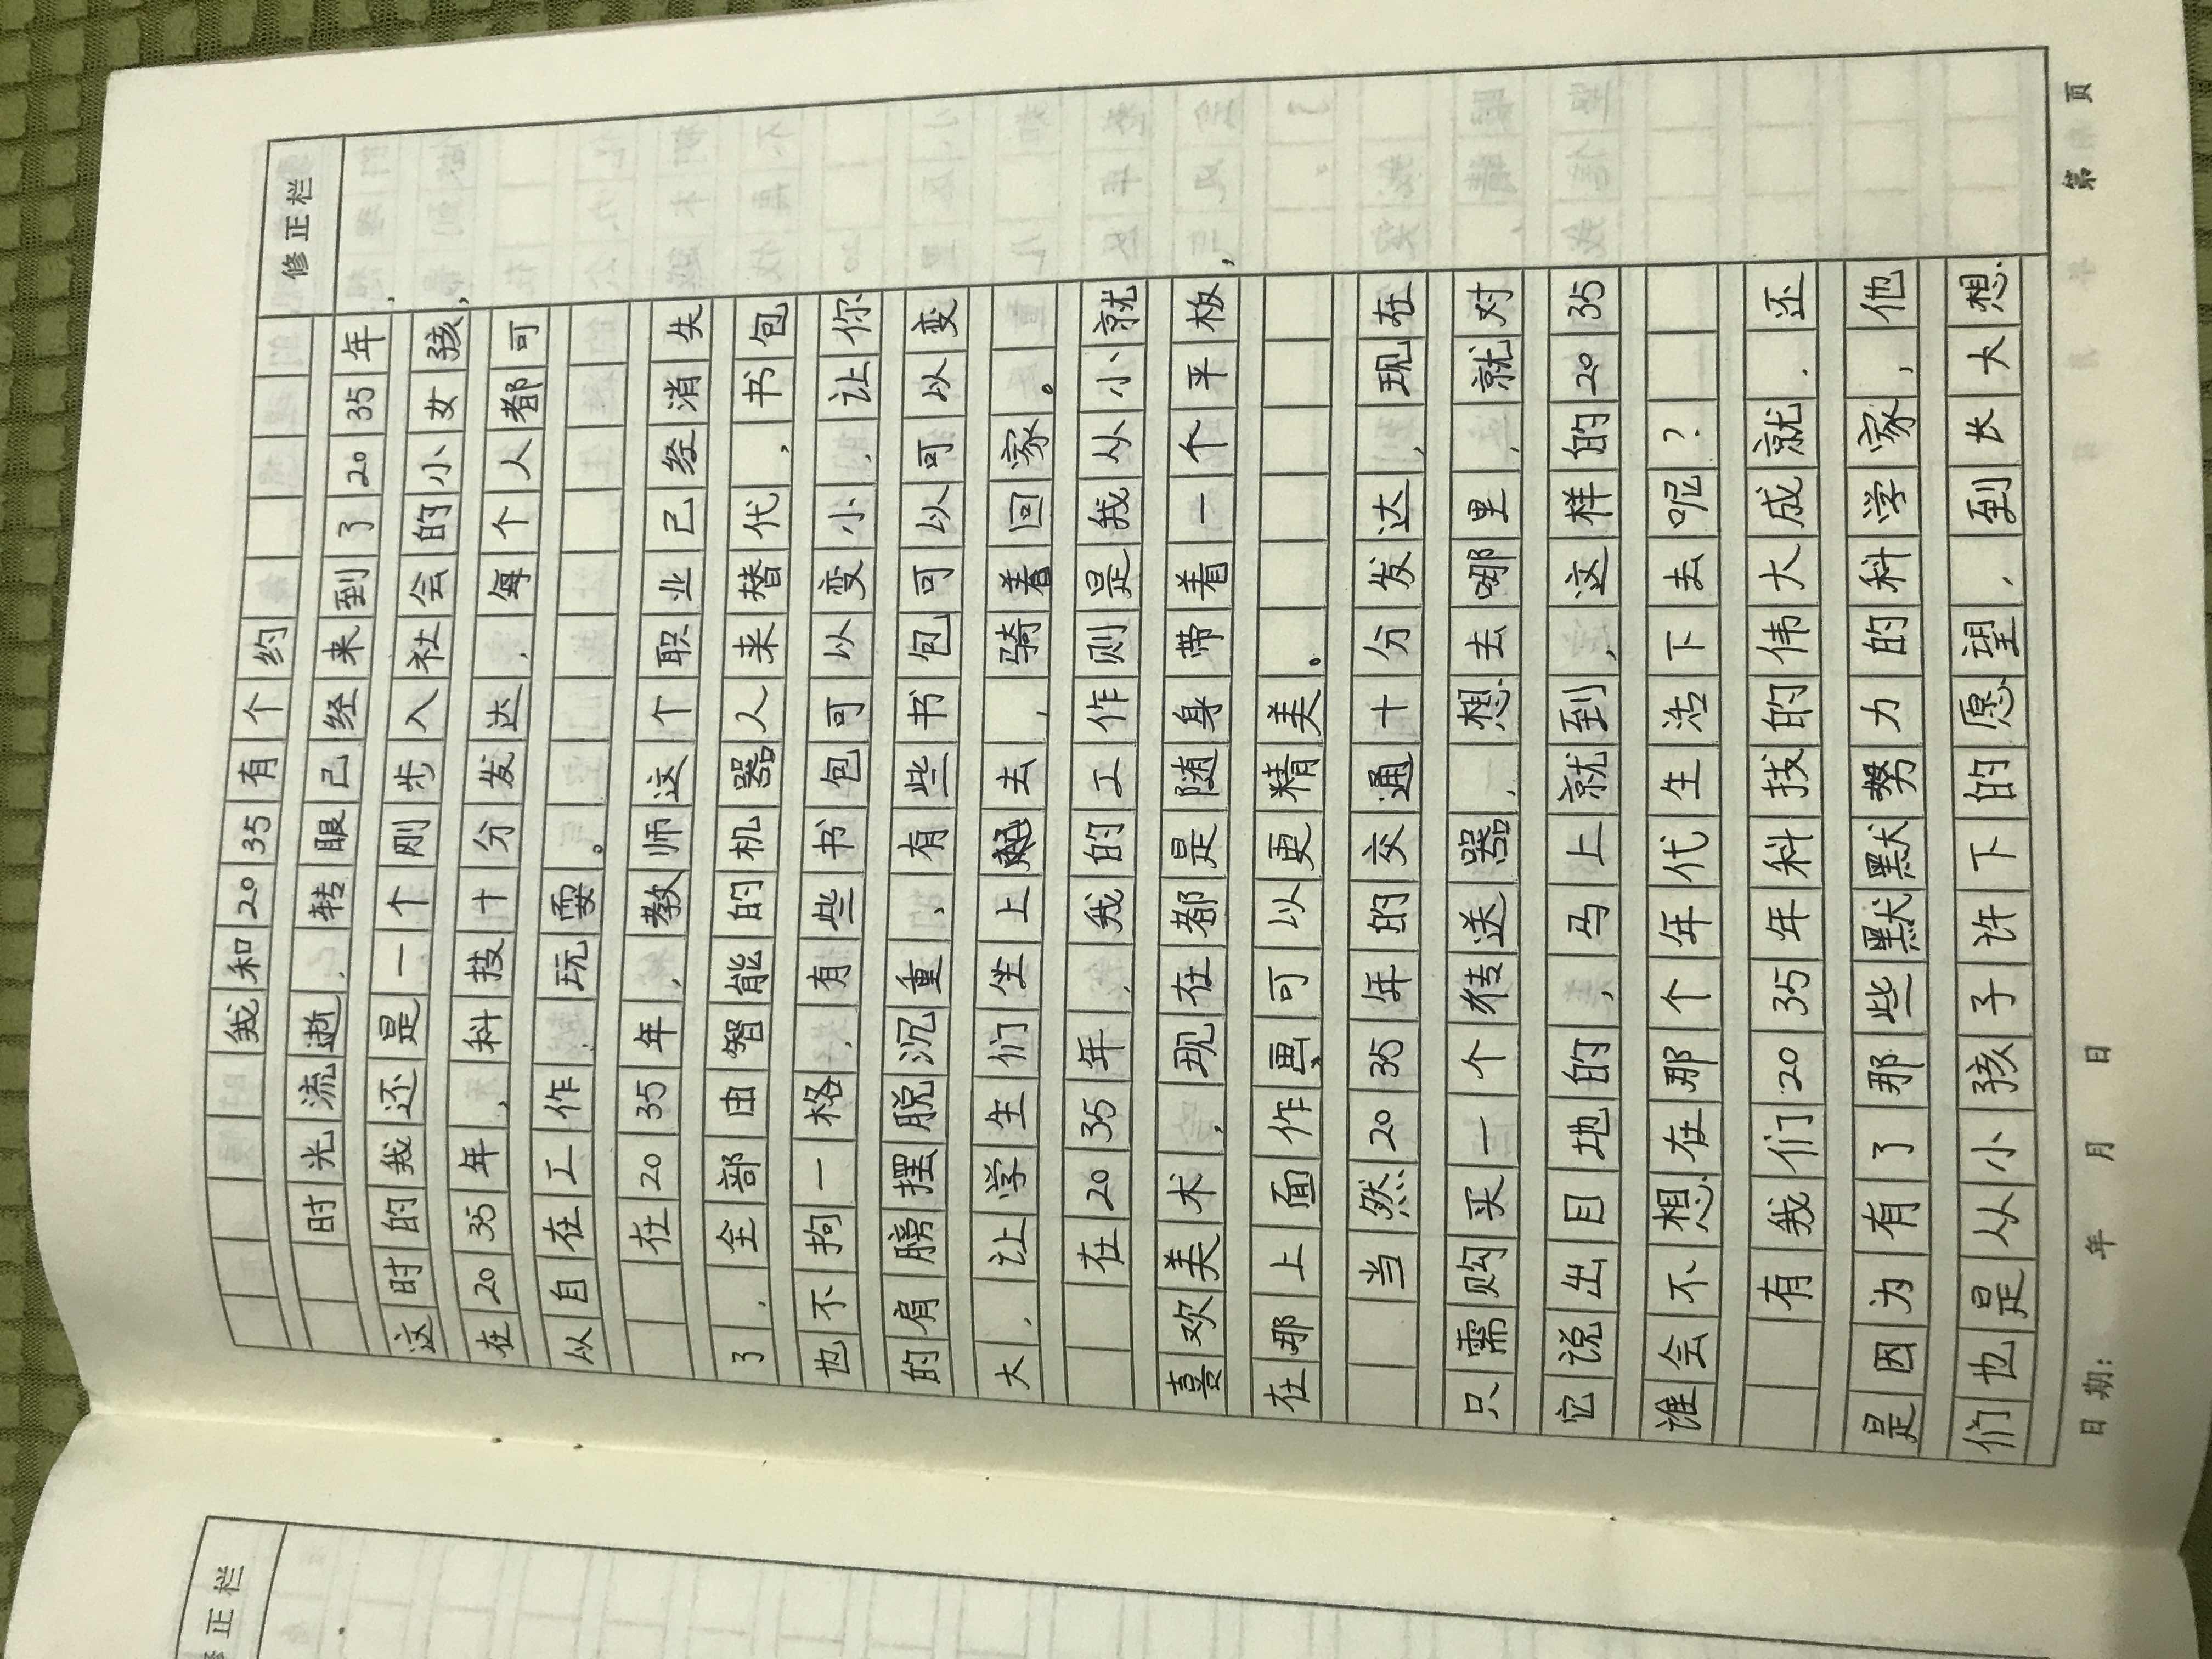 修正栏
我和2035有个约
时光流逝,转眼己经来到了2035年.
这时的我还是一个刚步入社会的小女孩,
在2035年,科技十分发达,每个人都可
以自在工作,玩耍。
在2035年,教师这个职业己经消失
了,全部由智能的机器人来替代,书包
也不拘一格,有些书包可以变小,让你
的肩膀摆脱沉重,有些书包可以可以变
大,让学生们坐上去,骑着回家。
在2035年,我的工作则是我从小就
喜欢美术,现在都是随身带着一个平板,
在那上面作画可以更精美。
当然2035年的交通十分发达,现在
只需购买一个传送器,想去哪里,就对
它说出目地的,马上就到,这样的2035
谁会不想在那个年代生活下去呢?
有我们2035年科技的伟大成就.还
是因为有了那些默默努力的科学家,他
们也是从小孩子许下的愿望,到长大想.
日期: 年 月 日 第 页
修正栏